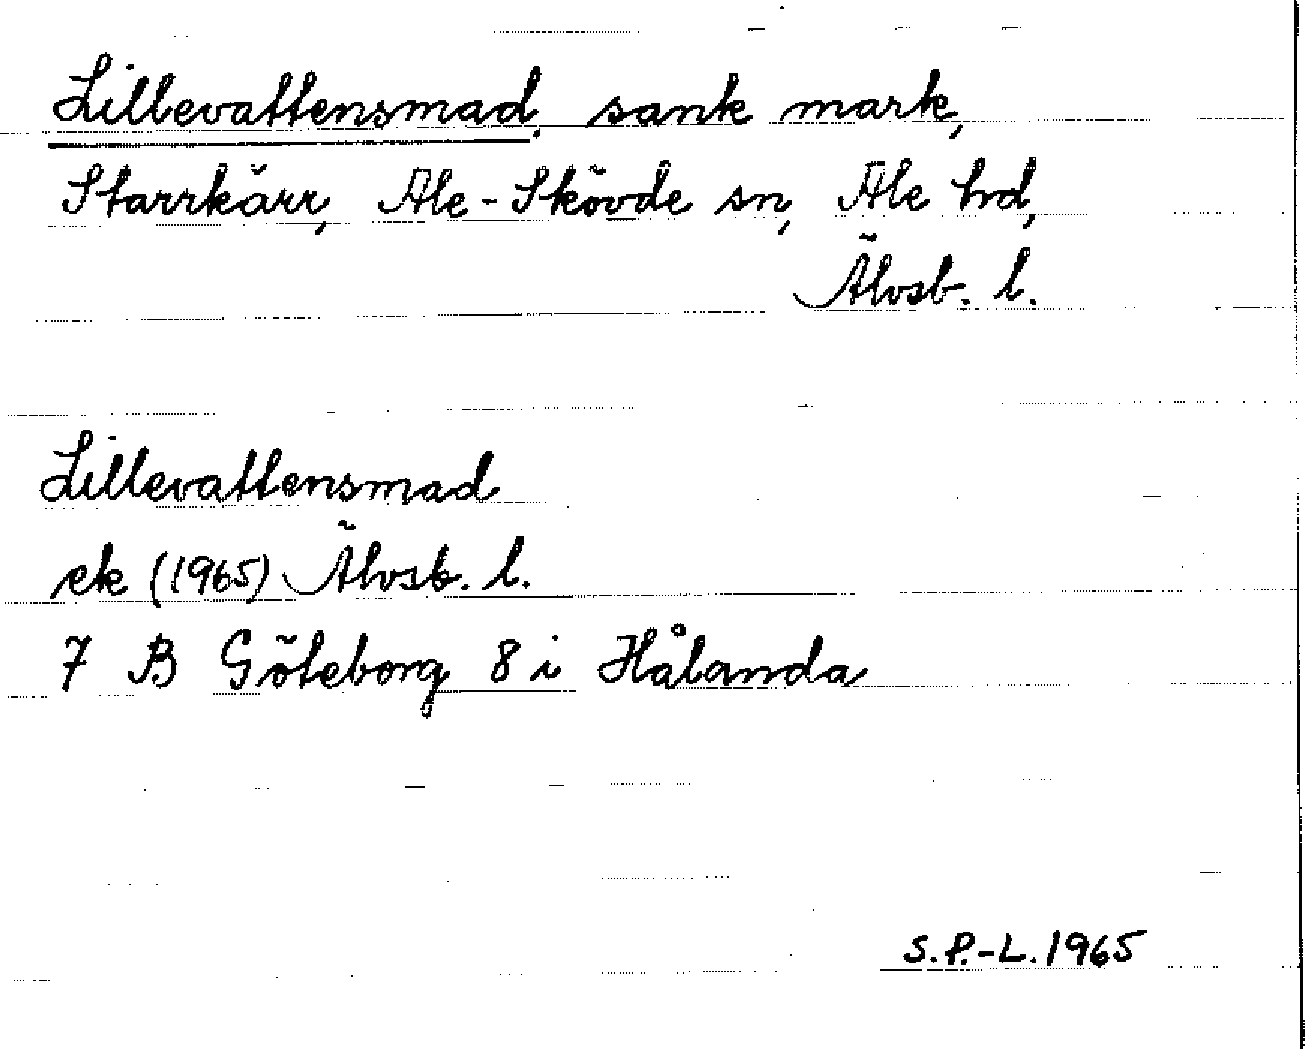 Lillevattensmad, sank mark,
Starrkärr, Ale-Skövde sn, Ale hd,
Älvsb. l.
Lillevattensmad
ek (1965) Älvsb. l.
7 B Göteborg 8 i Hålanda
S.P.-L. 1965